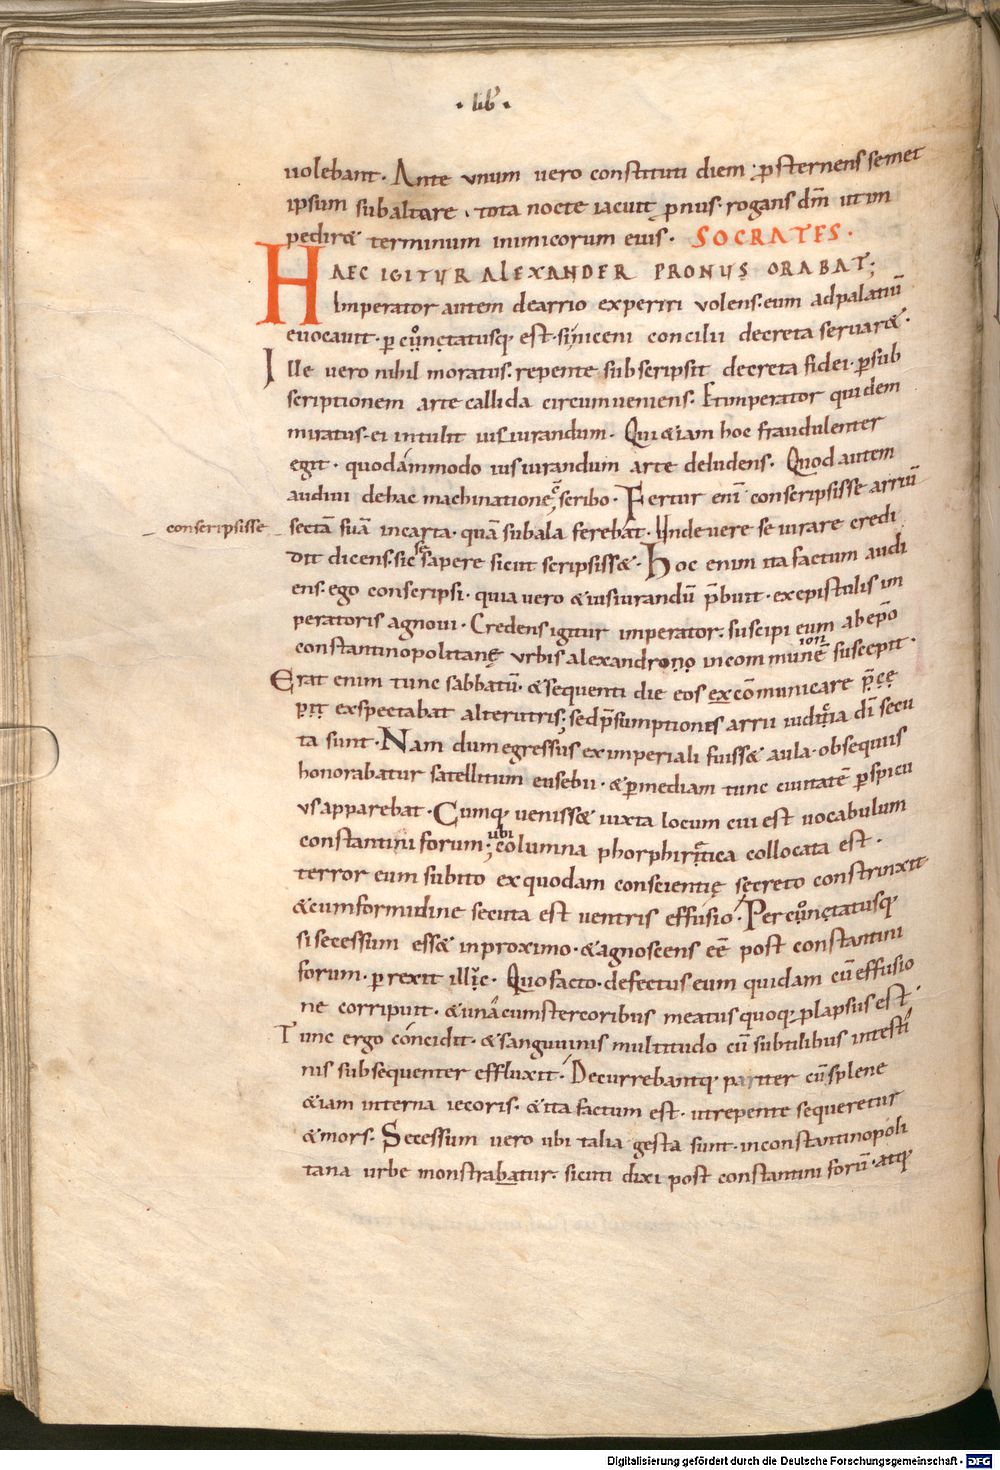 · lib̄ ·
uolebant. Ante unum uero constituti diem; ꝓsternens semet
ipsum sub altare, tota nocte iacuit ꝓnus. rogans dm̄ ut im
pedir& terminum inimicorum eius. SOCRATES.
HAEC IGITUR ALEXANDER PRONUS ORABAT;
Imperator autem de arrio experiri volens. eum ad palatiū
euocauit. ꝑcunctatusq; est. si niceni concilii decreta seruar&.
Ille uero nihil moratus. repente subscripsit decreta fidei. ꝑ sub
scriptionem arte callida circumueniens. Et imperator quidem
miratus. ei intulit iusiurandum. Qui &iam hoc fraudulenter
egit. quodammodo iusiurandum arte deludens. Quod autem
audiui de hac machinatione, scribo. Fertur eni conscripsisse arriū
conscripsisse
sectā suā in carta. quā sub ala ferebat. Unde uere se iurare credi
dit dicens. sic se sapere sicut scripsiss&. Hoc enim ita factum audi
ens. ego conscripsi. quia uero & iusiurandū p̄buit. ex epistolis im
peratoris agnoui. Credens igitur imperator. suscipi eum ab ep̄o
constantinopolitanę urbis alexandro in communionē suscepit.
Erat enim tunc sabbatū. & sequenti die eos excōmunicare
exspectabat alterutris; sed p̄sumptiones arrii iuditia dī secu
ta sunt. Nam dum egressus ex imperiali fuiss& aula. obsequiis
honorabatur satellitum eusebii. & ꝑ mediam tunc ciuitatē ꝑspicu
us apparebat. Cumq; ueniss& iuxta locum cui est uocabulum
constantini forum; ubi columna phorphiretica collocata est.
terror eum subito ex quodam conscientię secreto constrinxit
& cum formidine secuta est uentris effusio. Percunctatusq;
si secessum ess& in proximo. & agnoscens eē post constantini
forum. perrexit illic. Quo facto. defectus eum quidam cū effusio
ne corripuit. & una cum stercoribus meatus quoq; ꝓlapsus est.
Tunc ergo concidit. & sanguinis multitudo cū subtilibus intesti
nis subsequenter effluxit. Decurrebantq; pariter cū splene
&iam interna iecoris. & ita factum est. ut repente sequeretur
& mors. Secessum uero ubi talia gesta sunt. in constantinopoli
tana urbe monstrabatur. sicuti dixi post constantini forū. atq;
Digitalisierung gefördert durch die Deutsche Forschungsgemeinschaft - DFG